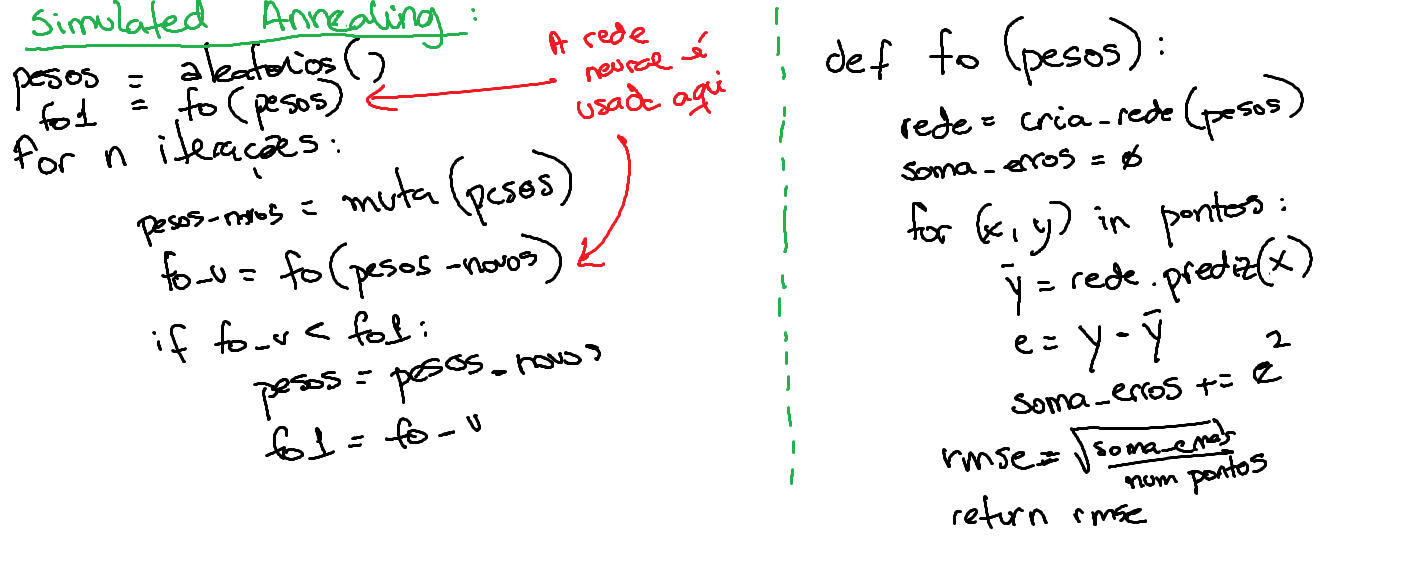 Simulated Annealing:
pesos = aleatorios()
fo1 = fo(pesos)
for n iterações:
pesos-novos = muta(pesos)
fo_v = fo(pesos-novos)
if fo_v < fo1:
pesos = pesos_novos
fo1 = fo_v
A rede
neural é
usada aqui
def fo (pesos):
rede = cria_rede(pesos)
soma_erros = 0
for (x, y) in pontos:
ȳ = rede.prediz(x)
e = y - ȳ
soma_erros += e²
rmse = √(soma_erros / num pontos)
return rmse